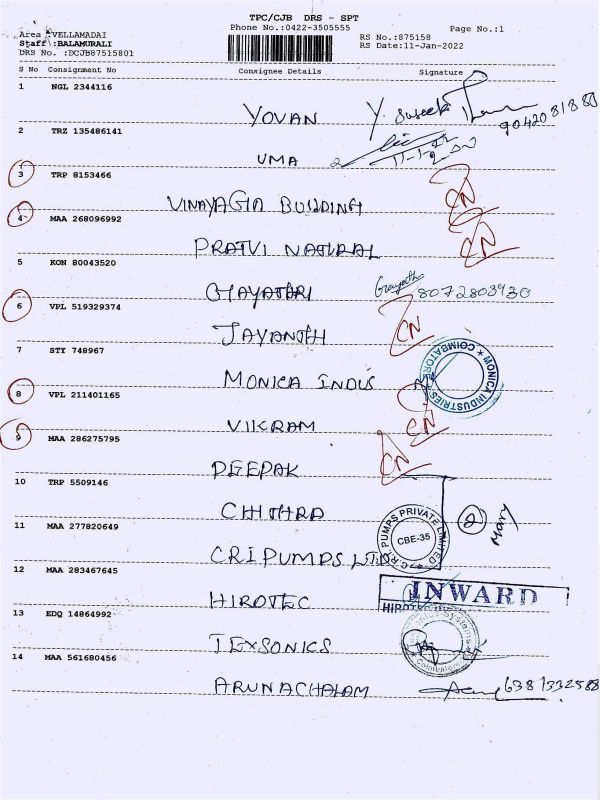 TPC/CJB DRS - SPT
Phone No.:0422-3505555
Page No.:1
Area :VELLAMADAI
Staff :BALAMURALI
DRS No. :DCJB87515801
RS No.:875158
RS Date:11-Jan-2022
S No Consignment No Consignee Details Signature
1 NGL 2344116
YOVAN
9042081888
2 TRZ 135486141
UMA
3 TRP 8153466
VINAYAGA BUILDING CN
4 MAA 268096992
PRATVI NATURAL CN
5 KON 80043520
GAYATARI Gayathri 8072803930
6 VPL 519329374
JAYANTH CN
7 STY 748967
MONICA INDUS MONICA INDUSTRIES ★ COIMBATORE ★
8 VPL 211401165
VIKRAM CN
9 MAA 286275795
DEEPAK CN
10 TRP 5509146
CHITHRA
11 MAA 277820649
CRI PUMPS LTD C.R.I. PUMPS PRIVATE LIMITED CBE-35 2 Mary
12 MAA 283467645
HIROTEC INWARD
13 EDQ 14864992
TEXSONICS Coimbatore
14 MAA 561680456
ARUNACHALAM 6381332588